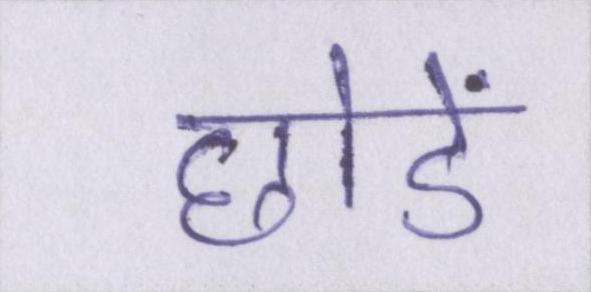 छोडें